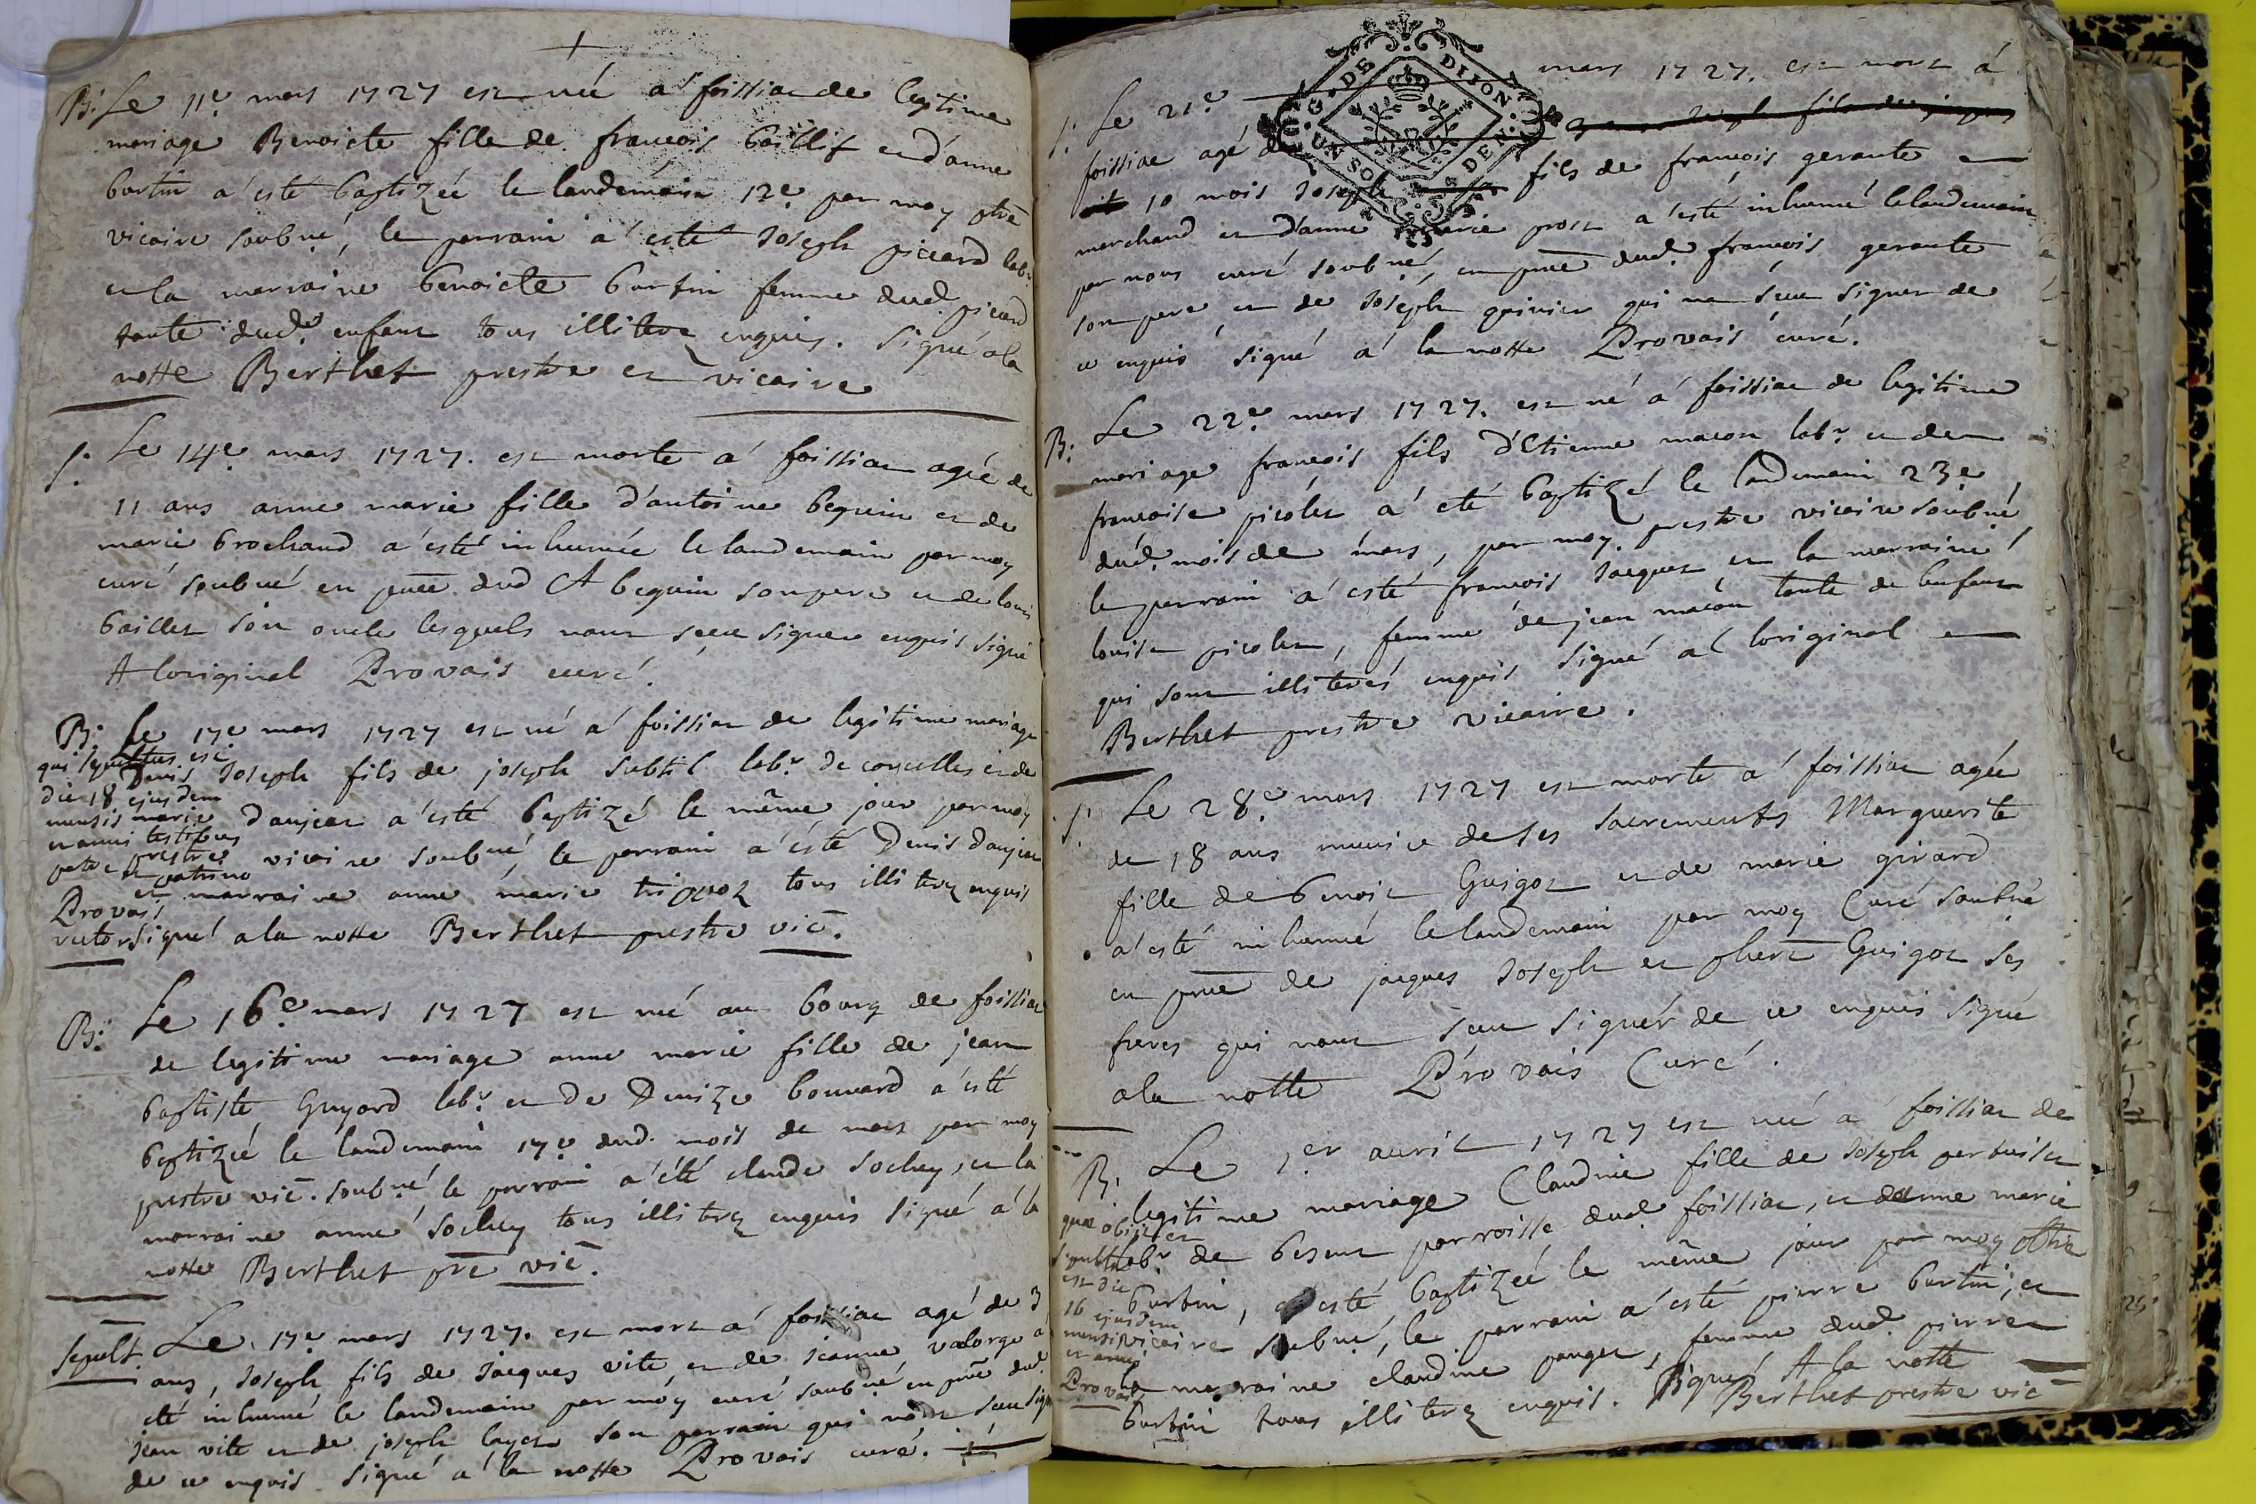 B. Le 11e mars 1727 est né a foissiac de legitime
mariage Benoicte fille de francois baillif et d'anne
burtin a esté baptizée le landemain 12e par moy ptre
vicaire soubné, le parrain a esté Joseph piccard labr
et la marraine benoicte burtin femme dud. picard
tante dud. enfant tous illiterez enquis. signé a la
notte Berthet prestre et vicaire
S. Le 14e mars 1727. est morte a foissiac agée de
11 ans anne marie fille d'antoine beguin et de
marie brochand a esté inhumée le landemain par moy
curé soubné en pnce dud A beguin son pere et de louis
baillet son oncle lesquels n'ont sceu signer enquis signé
A loriginal Provais curé.
B. Le 17e mars 1727 est né a foissiac de legitime mariage
Denis Joseph fils de joseph subtil labr de corcelles et de
marie danjean a esté baptizé le même jour par moy
prestre vicaire soubné le parrain a esté Denis danjean
et marraine anne marie triquoz tous illiterez enquis
signé a la notte Berthet prestre vic.
qui sepultus est
die 18 ejusdem
mensis
et anni testibus
patre et
patrino
Provais
rector
B. Le 16e mars 1727 est né au bourg de foissiac
de legitime mariage anne marie fille de jean
baptiste Guyard labr et de Denize bouvard a esté
baptizée le landemain 17e dud. mois de mars par moy
prestre vic. soubné le parrain a été claude sochey, et la
marraine anne sochey tous illiterez enquis signé a la
notte Berthet pre vic.
Sepult. Le 17e mars 1727. est mort a foissiac agé de 3
ans, Joseph fils de Jacques vite et de Jeanne valorge a
été inhumé le landemain par moy curé soubné en pnce dud
jean vite et de joseph layet son parrain qui n'ont sceu sign
de ce enquis signé a la notte Provais curé.
S. Le 21e mars 1727. est mort á
foissiac agé de
10 mois Joseph fils de françois gerante
marchand et d'anne marie prost a esté inhumé le landemain
par nous curé soubné, en pnce dud. françois gerante
son pere et de Joseph quinier qui na sceu signer de
ce enquis signé a la notte Provais curé.
B. Le 22e mars 1727. est né a foissiac de legitime
mariage françois fils d'Etienne macon labr et de
francoise picolet a eté baptizé le landemain 23e
dud. mois de mars, par moy prestre vicaire soubné,
le parrain a esté francois Jacquet et la marraine
louise picolet, femme de jean macon tante de lenfant
qui sont illiterés enquis signé a loriginal
Berthet prestre vicaire.
S. Le 28e mars 1727 est morte a foissiac agée
de 18 ans munie de ses sacrements Marguerite
fille de benoit Guigot et de marie girard
a esté inhumé le landemain par moy Curé soubné
en pnce de jacques Joseph et phert Guigot ses
freres qui n'ont sceu signér de ce enquis signé
a la notte Provais Curé.
B. Le 1er avril 1727 est né a foissiac de
legitime mariage Claudine fille de Joseph perbuiset
labr de besent parroisse dud foissiac, et danne marie
burtin, a esté baptizeé le même jour par moy ptre
vicaire soubné, le parrain a esté pierre burtin, et
marraine claudine panget, femme dud. pierre
burtin tous illiterez enquis. Signé A la notte
Berthet prestre vic
quae obiit et
sepulta
est die
16 ejusdem
mensis
et anni
Provais
G. DE DIJON
UN SOL 8 DEN.